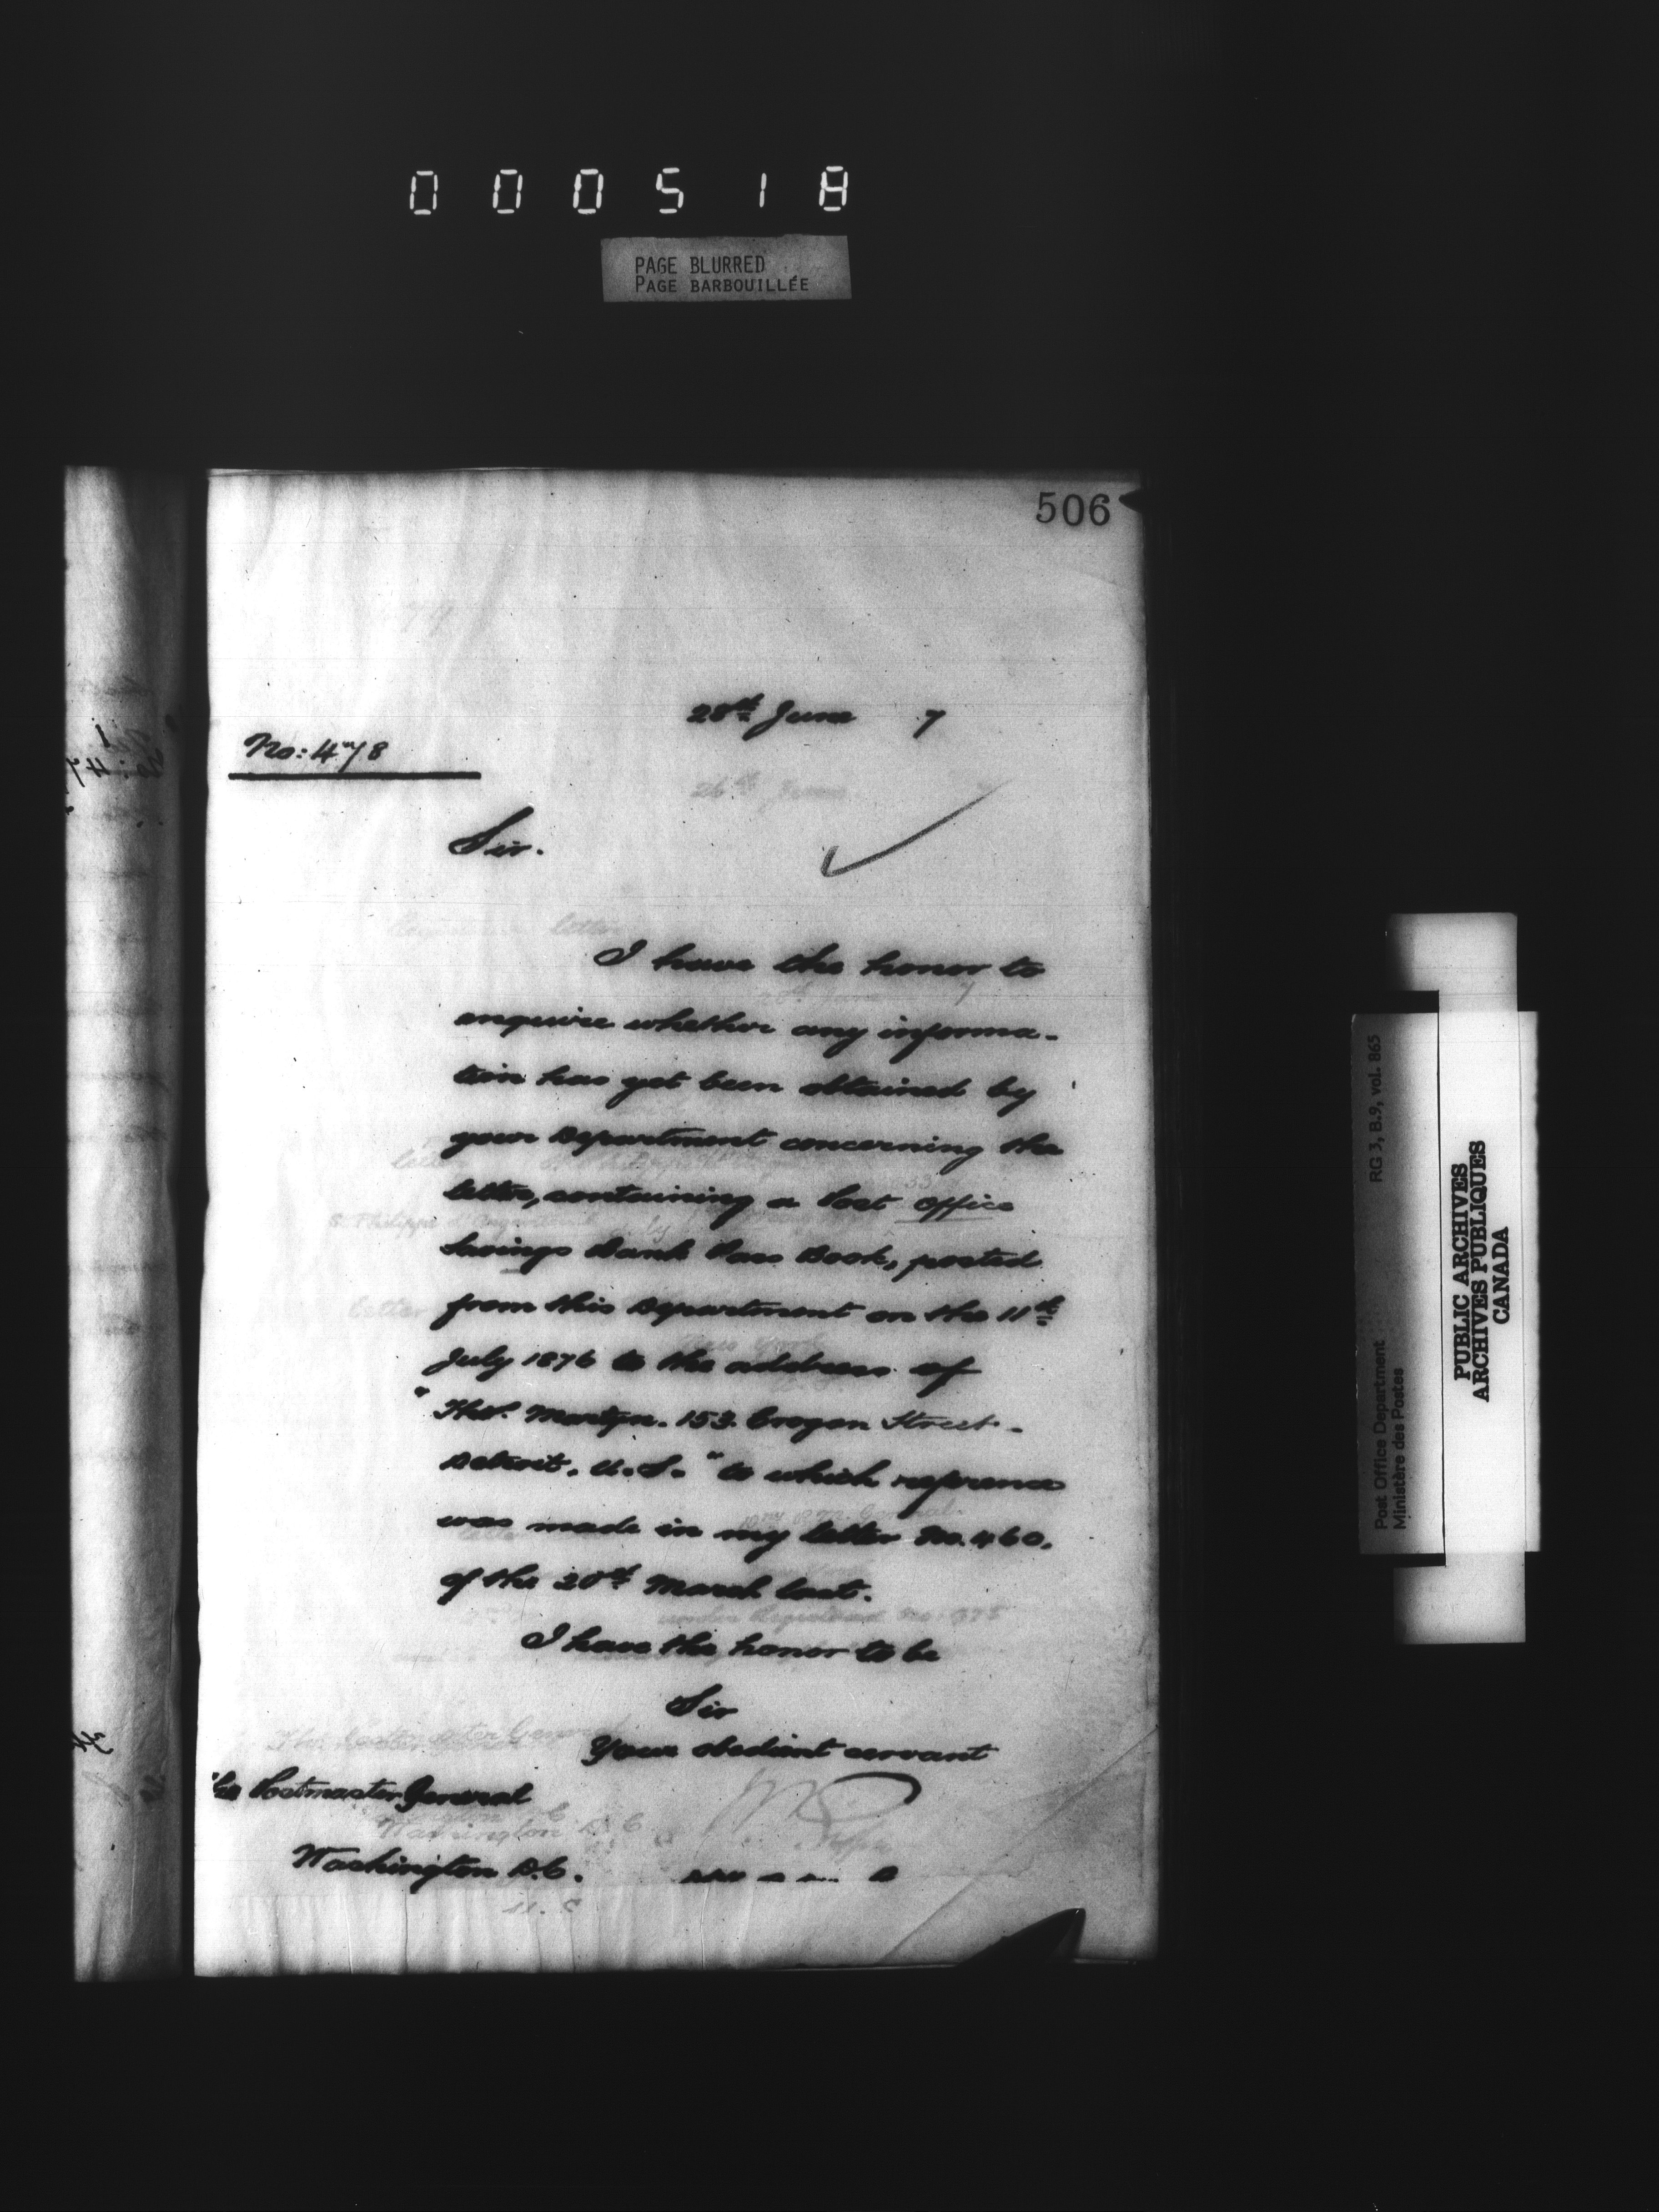 000518
PAGE BLURRED
PAGE BARBOUILLÉE
506
28th June 7
No: 478
26th June
Sir.
I have the honor to
enquire whether any informa-
tion has yet been obtained by
your Department concerning the
letter, containing a Post Office
Savings Bank Pass Book, posted
from this Department on the 11th
July 1876 to the address of
"Thos. Martyn. 153. Crogan Street.
Detroit. U.S." to which reference
was made in my letter No. 460.
of the 20th March last.
I have the honor to be
Sir
Your obedient servant
The Postmaster General
Washington D.C.
RG 3, B.9, vol. 865
Post Office Department
Ministère des Postes
PUBLIC ARCHIVES
ARCHIVES PUBLIQUES
CANADA